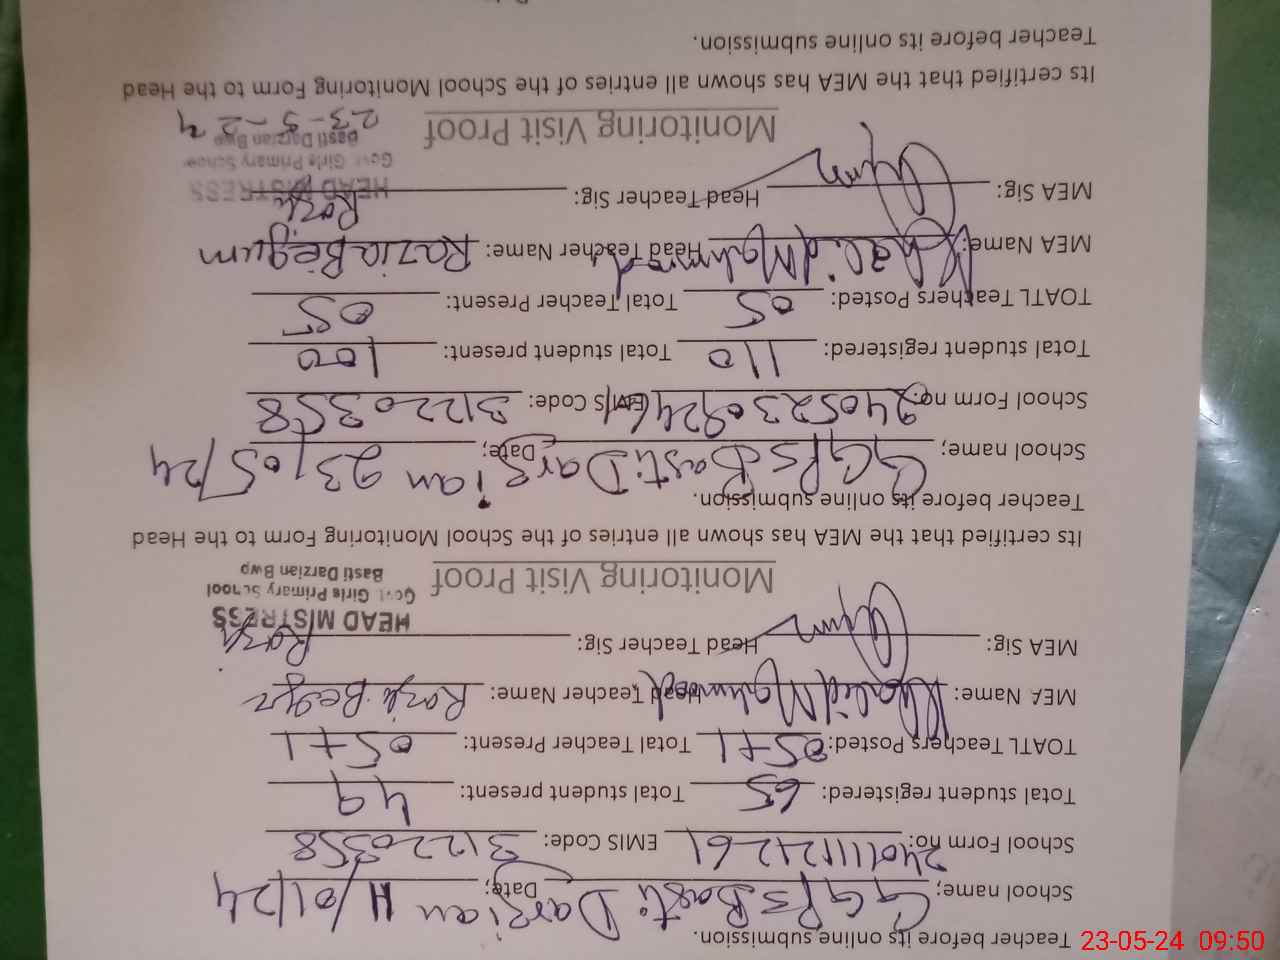 Teacher before its online submission.
School name; GGPS Basti Darzian Date; 11/01/24
School Form no: EMIS Code: 31220358
Total student registered: 65 Total student present: 49
TOATL Teachers Posted: 05+1 Total Teacher Present: 05+1
MEA Name: Khalid Mahmood Head Teacher Name:
MEA Sig: Head Teacher Sig:
HEAD MISTRESS
Govt Girls Primary School
Basti Darzian Bwp
Monitoring Visit Proof
Its certified that the MEA has shown all entries of the School Monitoring Form to the Head
Teacher before its online submission.
School name; GGPS Basti Darzian Date; 23/05/24
School Form no: EMIS Code: 31220358
Total student registered: 110 Total student present: 100
TOATL Teachers Posted: 05 Total Teacher Present: 05
MEA Name: Khalid Mahmood Head Teacher Name: Razia Begum
MEA Sig: Head Teacher Sig:
HEAD MISTRESS
Govt Girls Primary School
Basti Darzian Bwp
23-5-24
Monitoring Visit Proof
Its certified that the MEA has shown all entries of the School Monitoring Form to the Head
Teacher before its online submission.
23-05-24 09:50